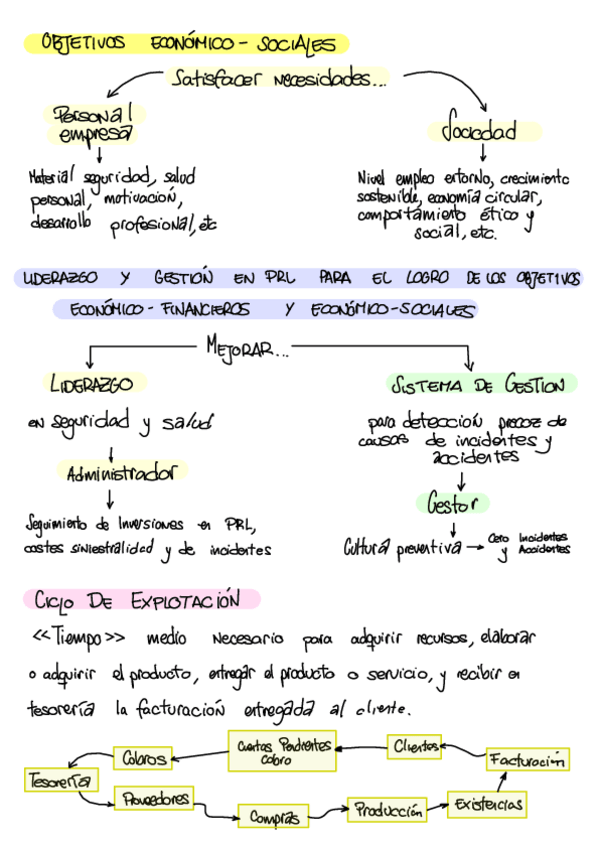 OBJETIVOS ECONÓMICO - SOCIALES
Satisfacer necesidades...
Personal
empresa
Material seguridad, salud
personal, motivación,
desarrollo profesional, etc
Sociedad
Nivel empleo entorno, crecimiento
sostenible, economía circular,
comportamiento ético y
social, etc.
LIDERAZGO Y GESTIÓN EN PRL PARA EL LOGRO DE LOS OBJETIVOS
ECONÓMICO - FINANCIEROS Y ECONÓMICO - SOCIALES
MEJORAR...
LIDERAZGO
en seguridad y salud
Administrador
Seguimiento de Inversiones en PRL,
costes siniestralidad y de incidentes
SISTEMA DE GESTION
para detección precoz de
causas de incidentes y
accidentes
Gestor
Cultura preventiva → Cero Incidentes
y Accidentes
CICLO DE EXPLOTACIÓN
<<Tiempo>> medio necesario para adquirir recursos, elaborar
o adquirir el producto, entregar el producto o servicio, y recibir en
tesorería la facturación entregada al cliente.
Tesorería
Cobros
Cuentas Pendientes
cobro
Clientes
Facturación
Proveedores
Compras
Producción
Existencias